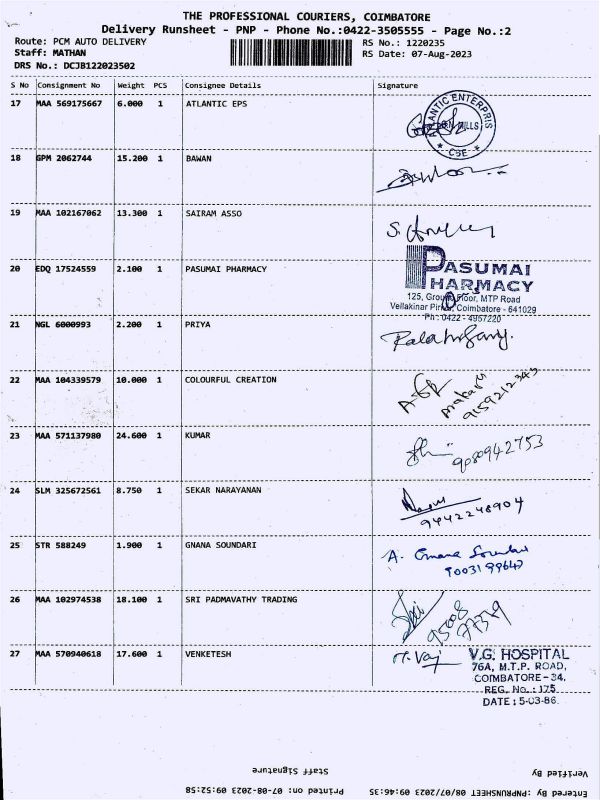 THE PROFESSIONAL COURIERS, COIMBATORE
Delivery Runsheet - PNP - Phone No.:0422-3505555 - Page No.:2
Route: PCM AUTO DELIVERY
Staff: MATHAN
DRS No.: DCJB122023502
RS No.: 1220235
RS Date: 07-Aug-2023
S No Consignment No Weight PCS Consignee Details Signature
17 MAA 569175667 6.000 1 ATLANTIC EPS
ATLANTIC ENTERPRIS
MILLS
CBE
18 GPM 2062744 15.200 1 BAWAN
19 MAA 102167062 13.300 1 SAIRAM ASSO
20 EDQ 17524559 2.100 1 PASUMAI PHARMACY
PASUMAI
PHARMACY
125, Ground Floor, MTP Road
Vellakinar Pirivu, Coimbatore - 641029
Ph : 0422 - 4957220
21 NGL 6000993 2.200 1 PRIYA
22 MAA 104339579 10.000 1 COLOURFUL CREATION
9159212343
23 MAA 571137980 24.600 1 KUMAR
9080942753
24 SLM 325672561 8.750 1 SEKAR NARAYANAN
9442248904
25 STR 588249 1.900 1 GNANA SOUNDARI
A. Gnana Soundari
26 MAA 102974538 18.100 1 SRI PADMAVATHY TRADING
27 MAA 570940618 17.600 1 VENKETESH
V.G. HOSPITAL
76A, M.T.P. ROAD,
COIMBATORE - 34.
REG. No. : 175
DATE : 5-03-86
Staff Signature
Verified By
Printed on: 07-08-2023 09:52:58
Entered By: PNPRUNSHEET 08/07/2023 09:46:35